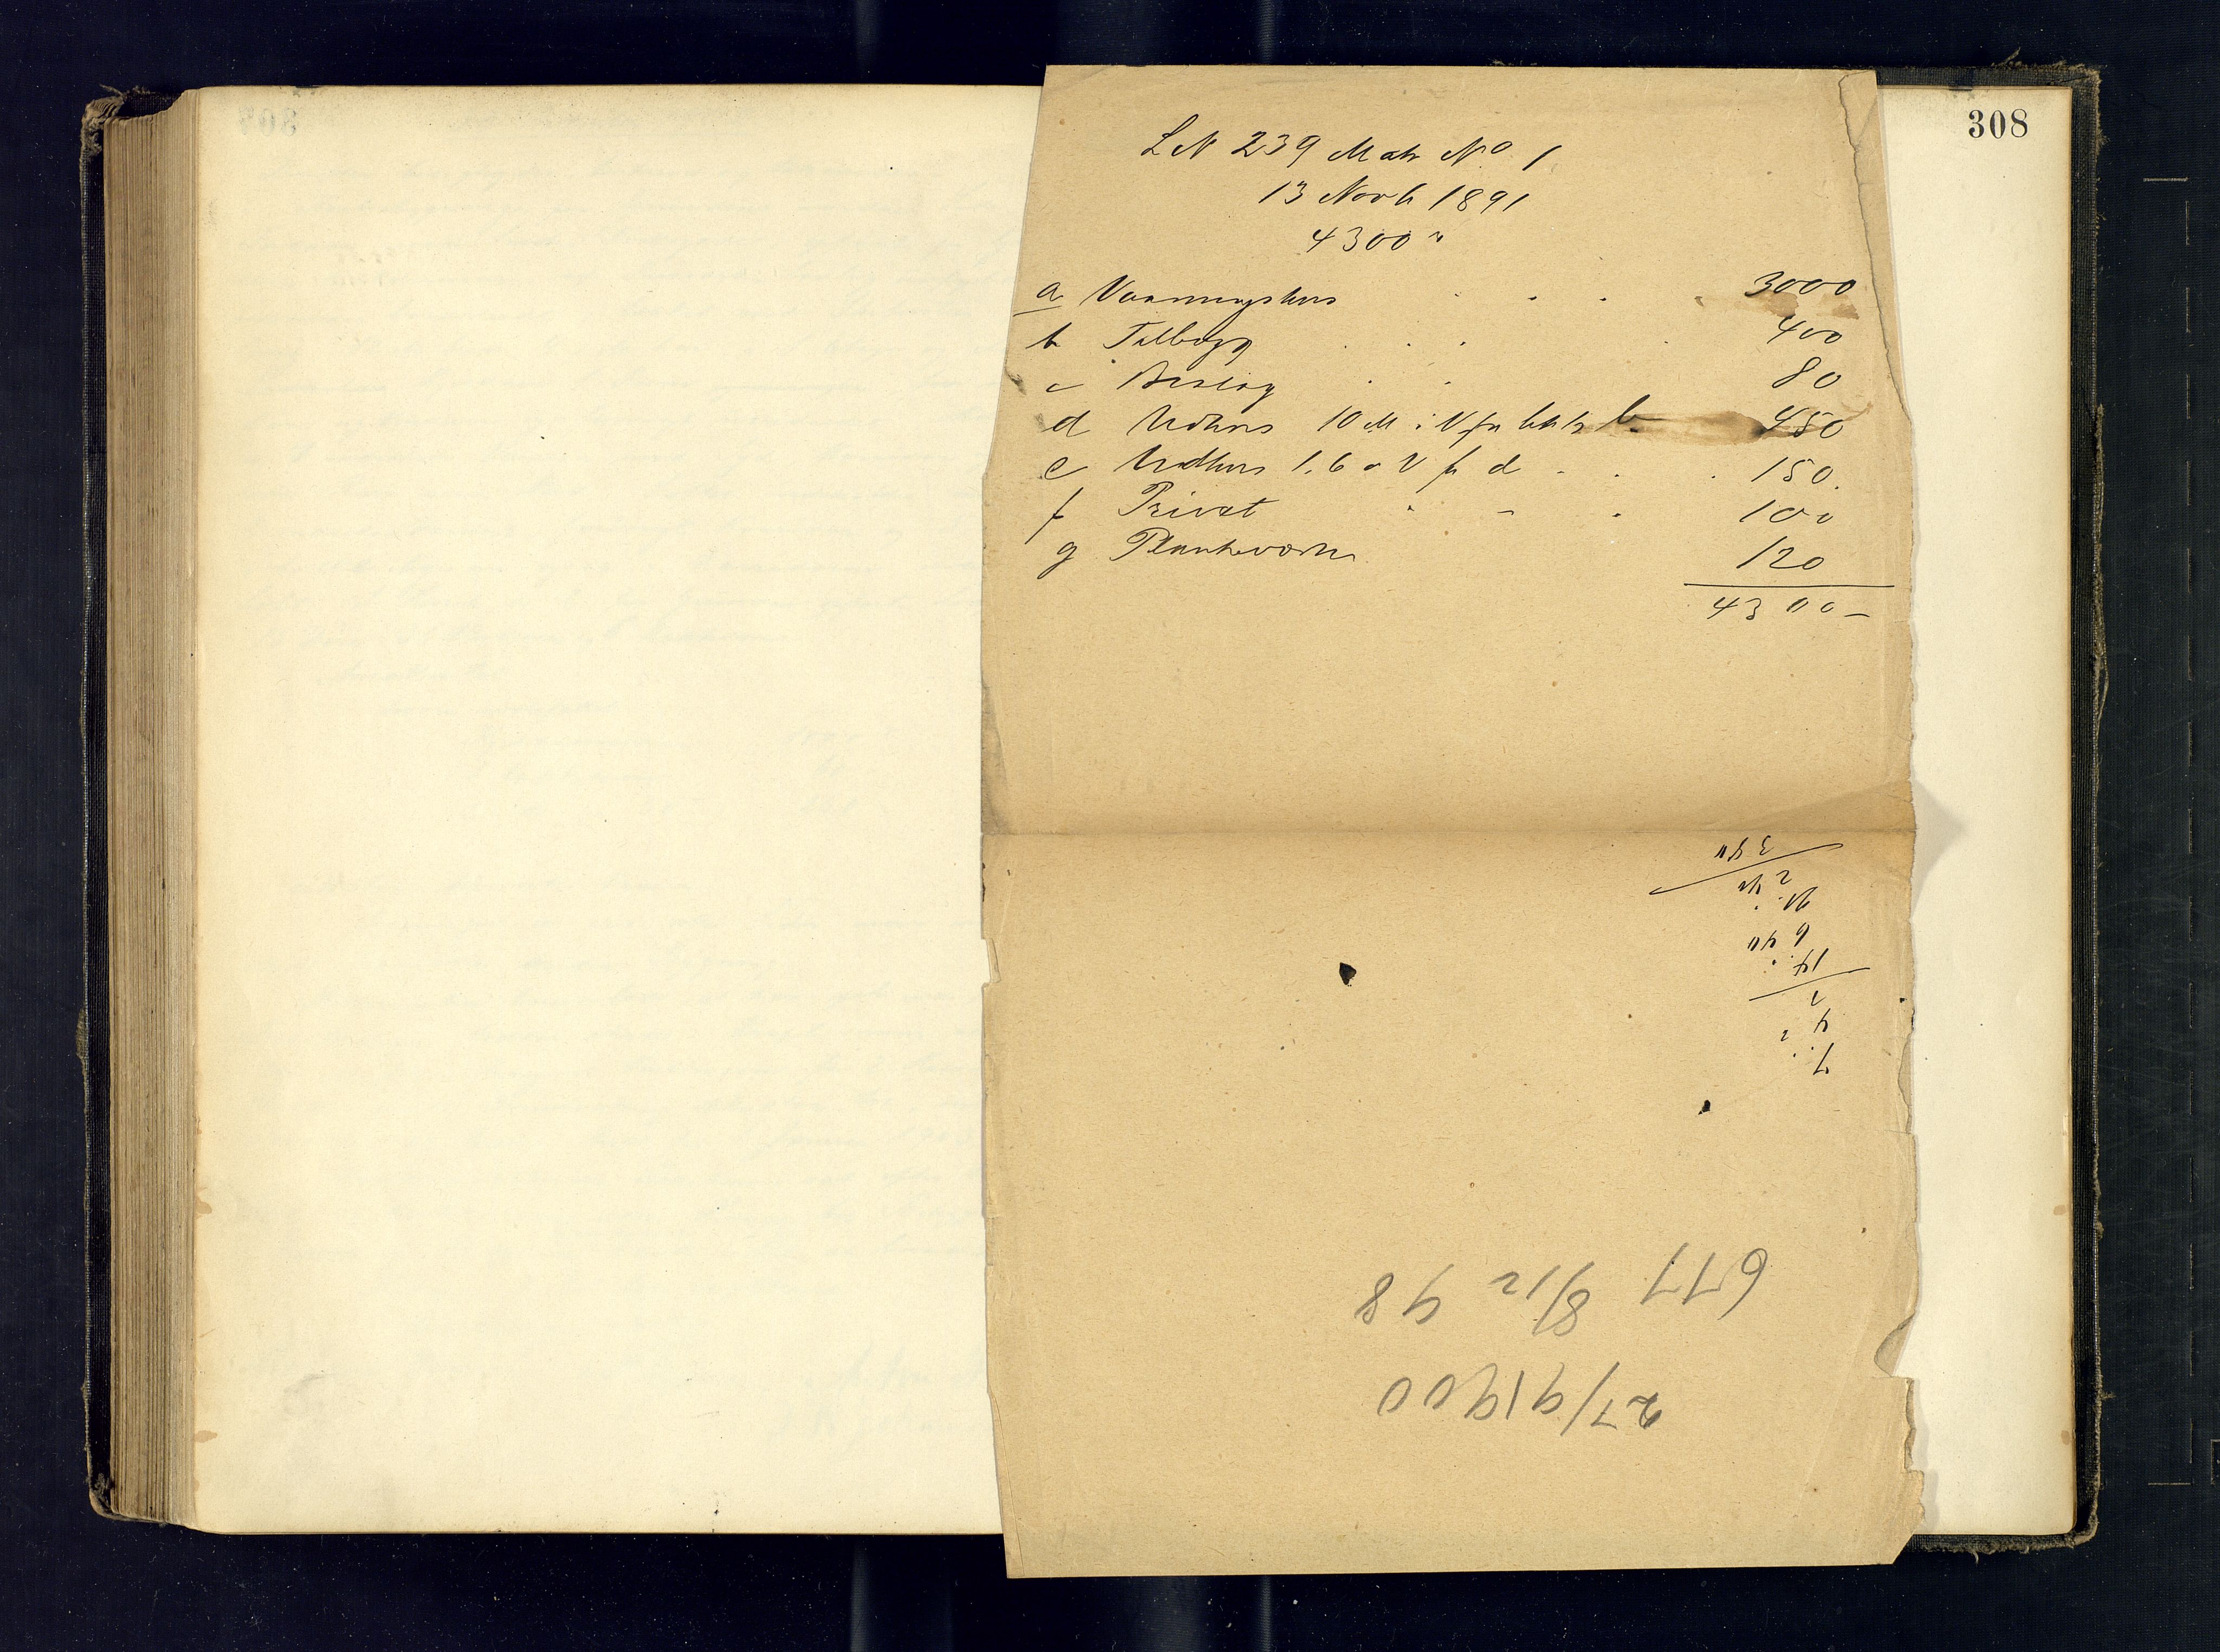 308
LN 239 Matr No 1
13 Novb 1891
4300 "
a Vaaningshus . . . 3000
b Tilbygg . . . 400
c Beslag . . 80
d Udhus 10 M i V fr b 450
e Udhus 1.6 o V fr d . . . 150.
f Privat . - . 100
g Plankeværk 120
4300 -
27/9 1900
677 8/12 98
7
14
6 40
2 40
3 40